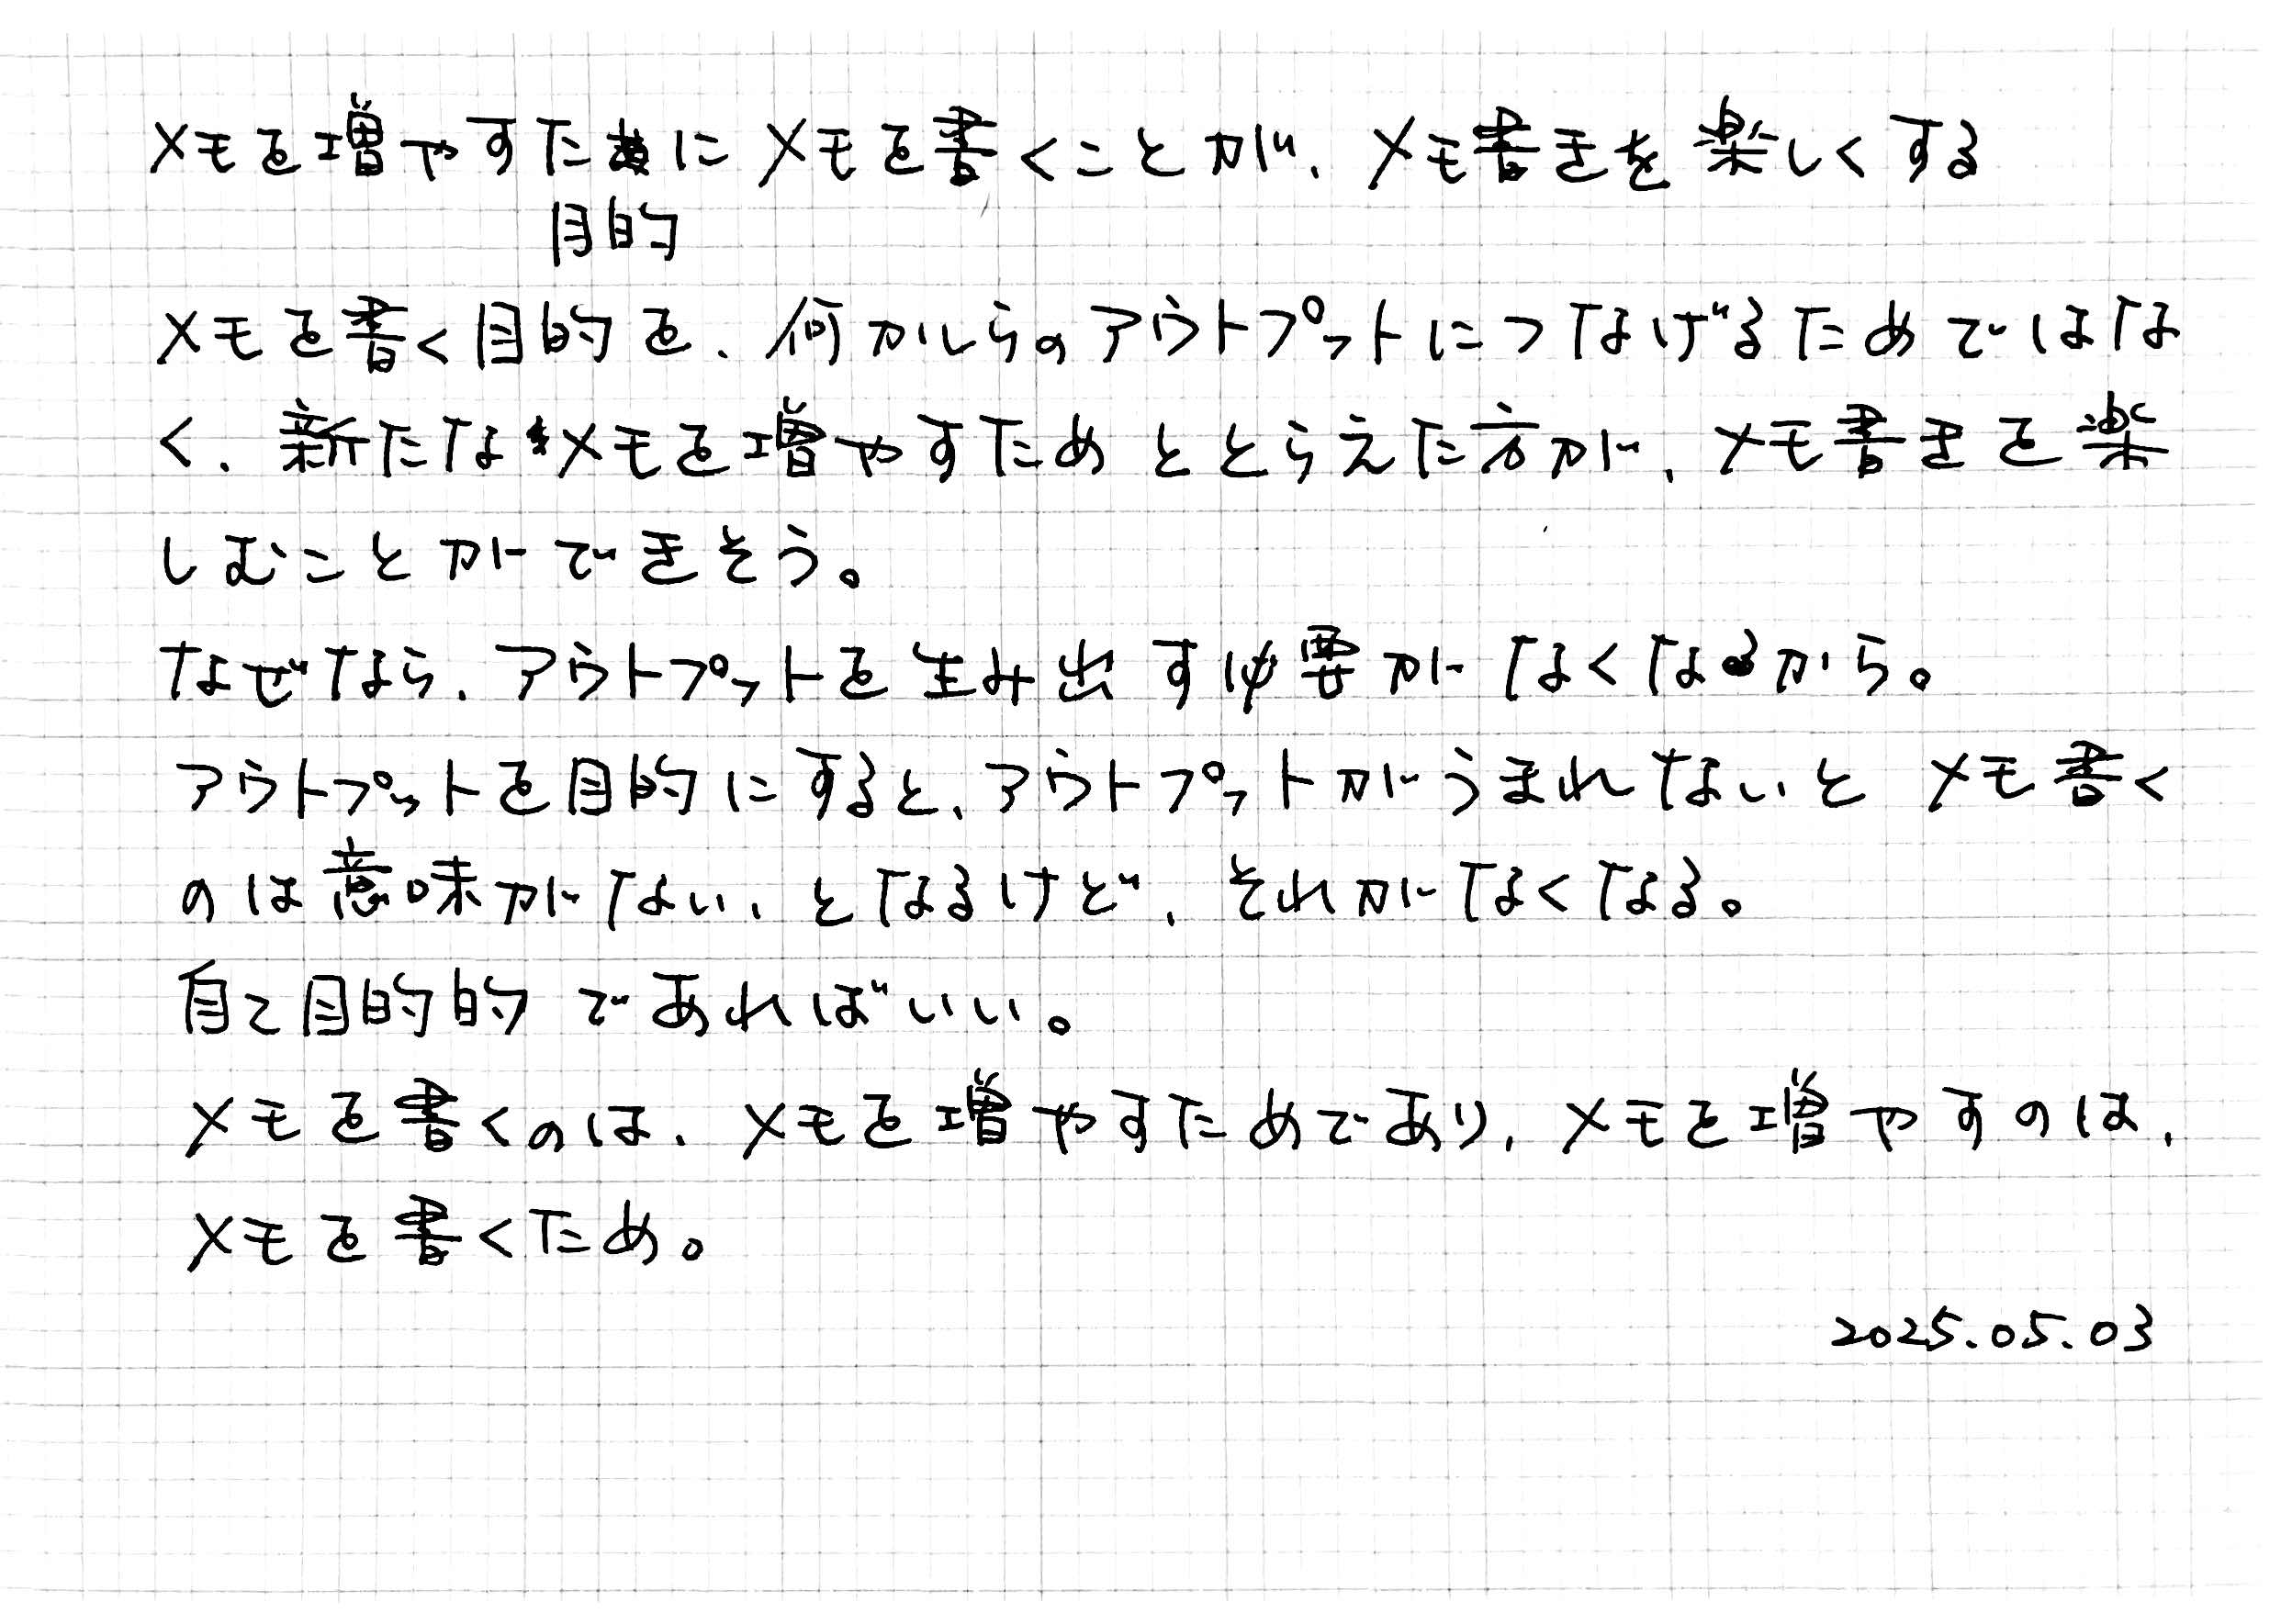 メモを増やすためにメモを書くことが、メモ書きを楽しくする
目的
メモを書く目的を、何かしらのアウトプットにつなげるためではな
く、新たなメモを増やすためととらえた方が、メモ書きを楽
しむことができそう。
なぜなら、アウトプットを生み出す必要がなくなるから。
アウトプットを目的にすると、アウトプットがうまれないとメモ書く
のは意味がない、となるけど、それがなくなる。
自己目的的であればいい。
メモを書くのは、メモを増やすためであり、メモを増やすのは、
メモを書くため。
2025.05.03